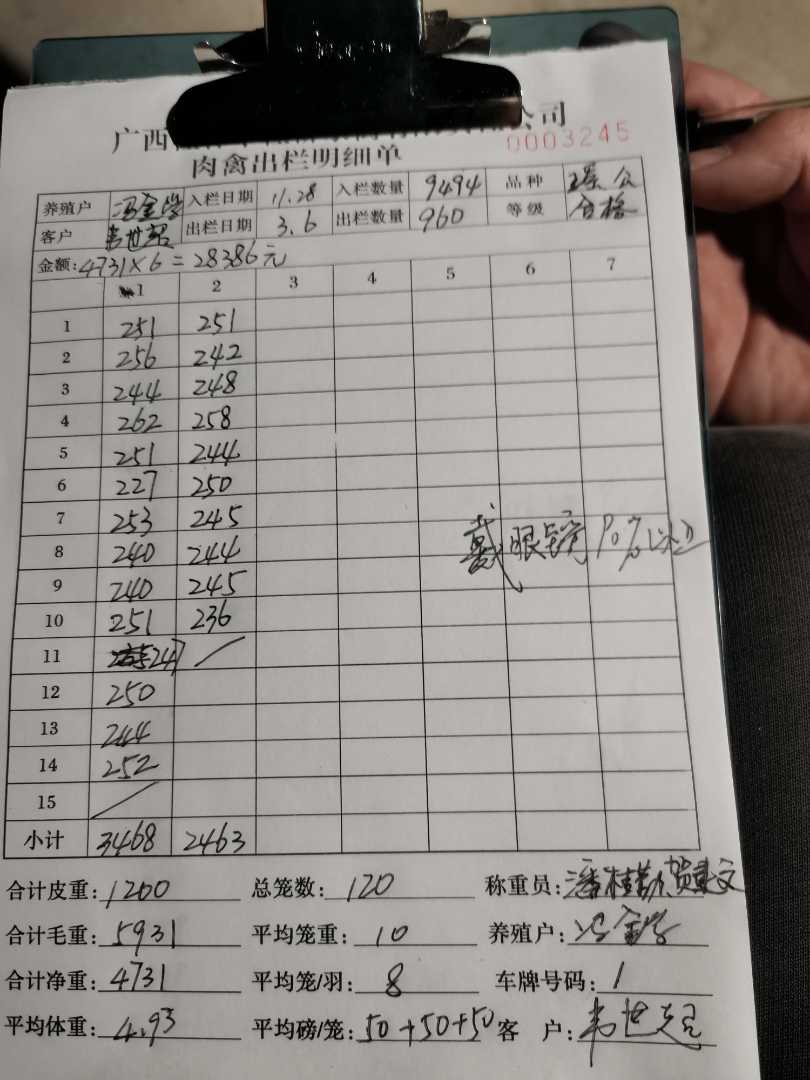 广西
公司
0003245
肉禽出栏明细单
养殖户 冯金学 入栏日期 11.28 入栏数量 9494 品种 瑶公
客户 韦世超 出栏日期 3.6 出栏数量 960 等级 合格
金额: 4731×6=28386元
1 2 3 4 5 6 7
1 251 251
2 256 242
3 244 248
4 262 258
5 251 244
6 227 250
7 253 245
8 240 244
9 240 245
10 251 236
11 247 /
12 250
13 244
14 252
15 /
小计 3468 2463
戴眼镜90%以上
合计皮重: 1200 总笼数: 120 称重员: 潘桂勤 贺建文
合计毛重: 5931 平均笼重: 10 养殖户: 冯金学
合计净重: 4731 平均笼/羽: 8 车牌号码: 1
平均体重: 4.93 平均磅/笼: 50+50+50 客 户: 韦世超